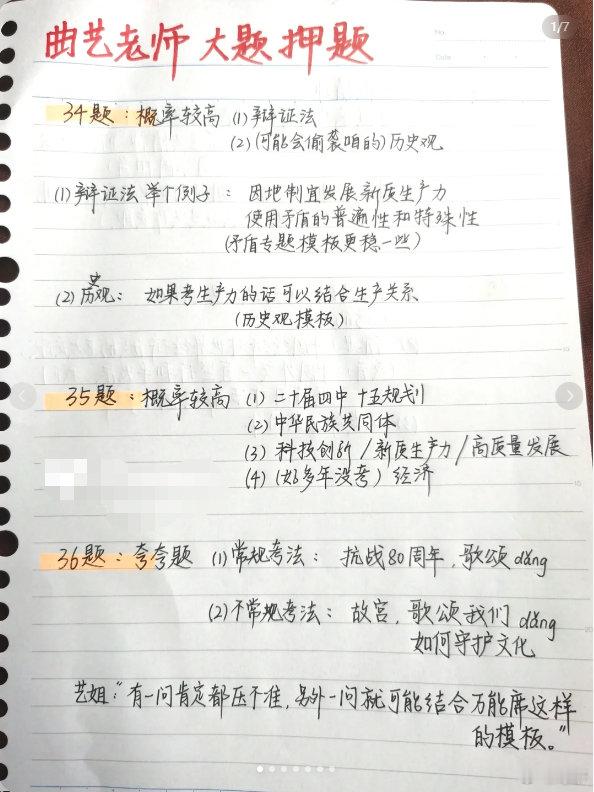 1/7
No.
Date
曲艺老师 大题押题
34题：概率较高 (1) 辩证法
(2) (可能会偷袭咱的) 历史观
(1) 辩证法 举个例子： 因地制宜发展新质生产力
使用矛盾的普遍性和特殊性
(矛盾专题模板更稳一些)
(2) 历史观： 如果考生产力的话可以结合生产关系
(历史观模板)
35题：概率较高 (1) 二十届四中 十五规划
(2) 中华民族共同体
(3) 科技创新/新质生产力/高质量发展
(4) (好多年没考) 经济
36题：夸夸题 (1) 常规考法： 抗战80周年，歌颂dǎng
(2) 不常规考法： 故宫，歌颂我们dǎng
如何守护文化
艺姐：“有一问肯定都压不准，另外一问就可能结合万能席这样
的模板。”